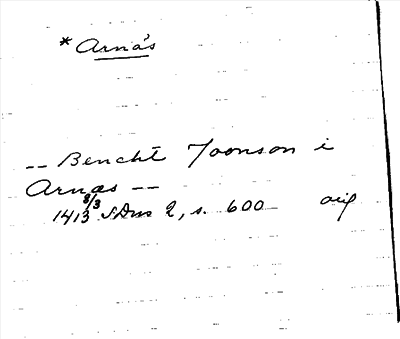 * Arnäs
-- Bencht Joonson i
Arnæs --
1413 8/3 SDns 2, s. 600 orig